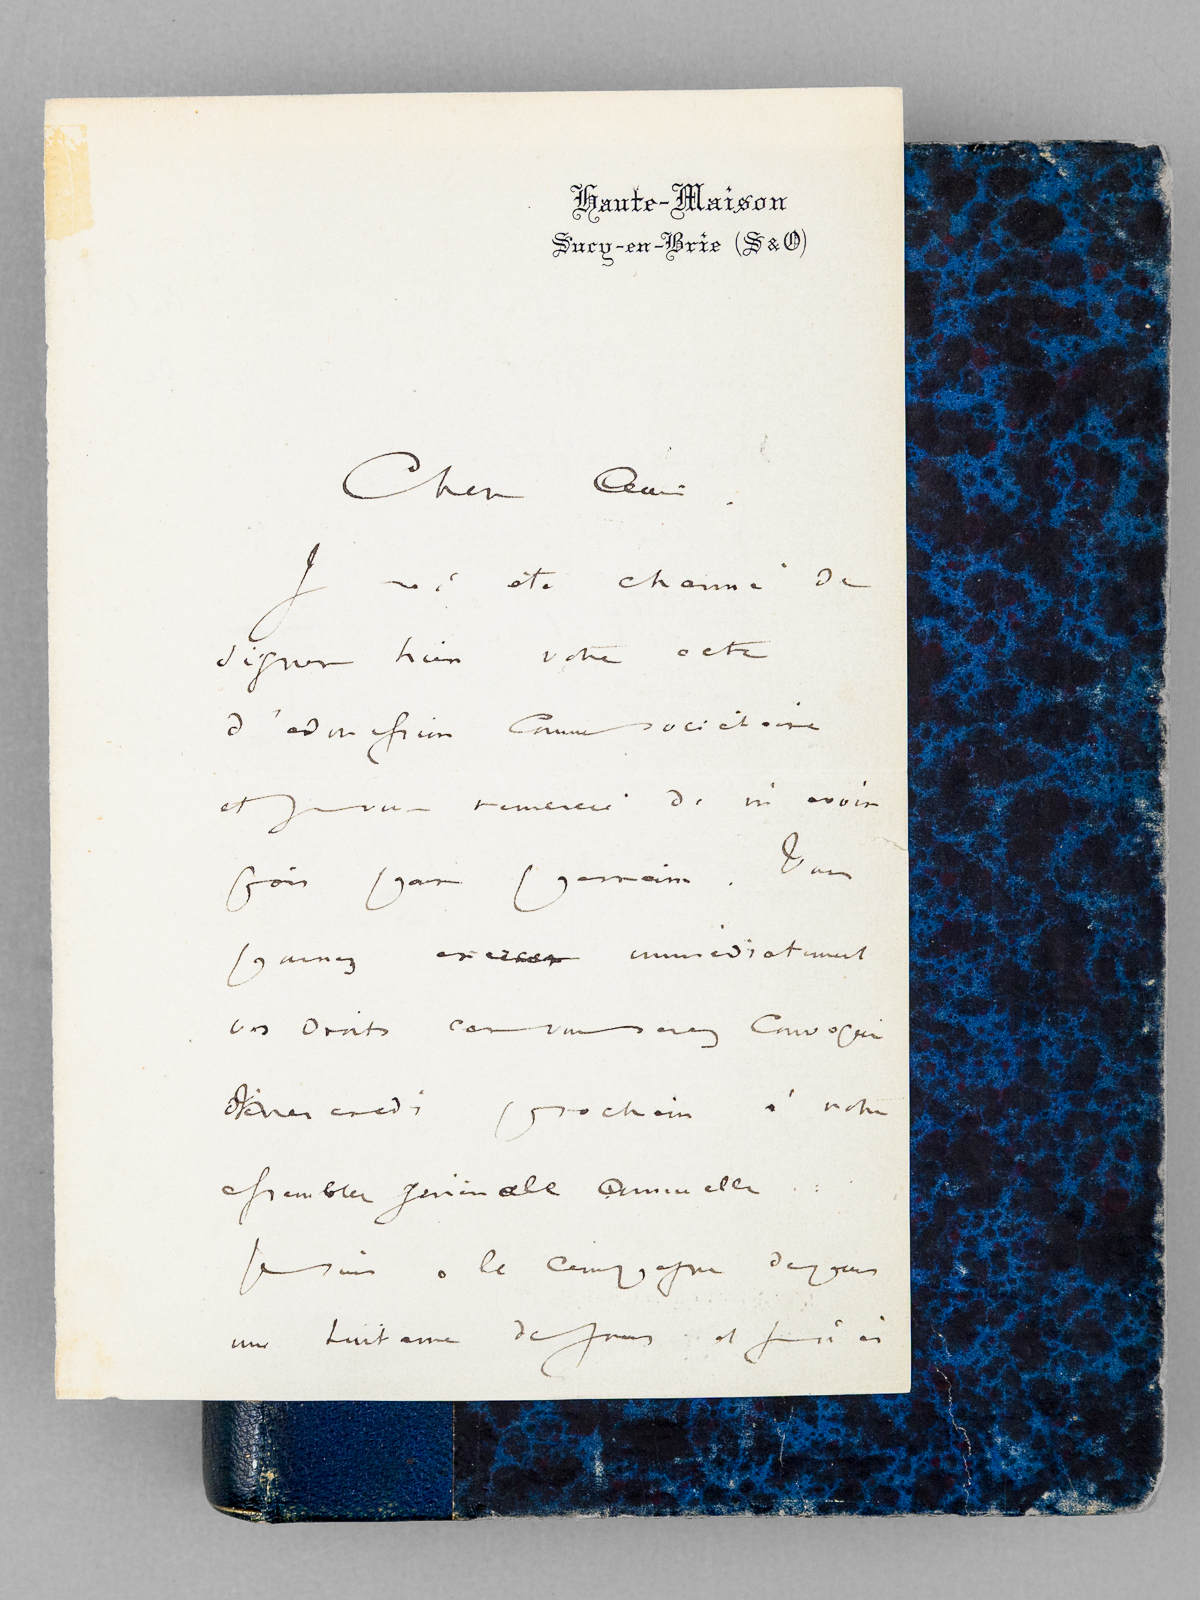 Haute-Maison
Sucy-en-Brie (S&O)
Cher Ami.
J été charmé de
signer hier votre acte
d'admission comme sociétaire
et je vous remercie de m'avoir
pris pour parrain. Vous
pourrez exercer immédiatement
vos droits car vous serez convoqué
Mercredi prochain à notre
assemblée générale annuelle
Je suis à la campagne depuis
une huitaine de jours et je n'ai